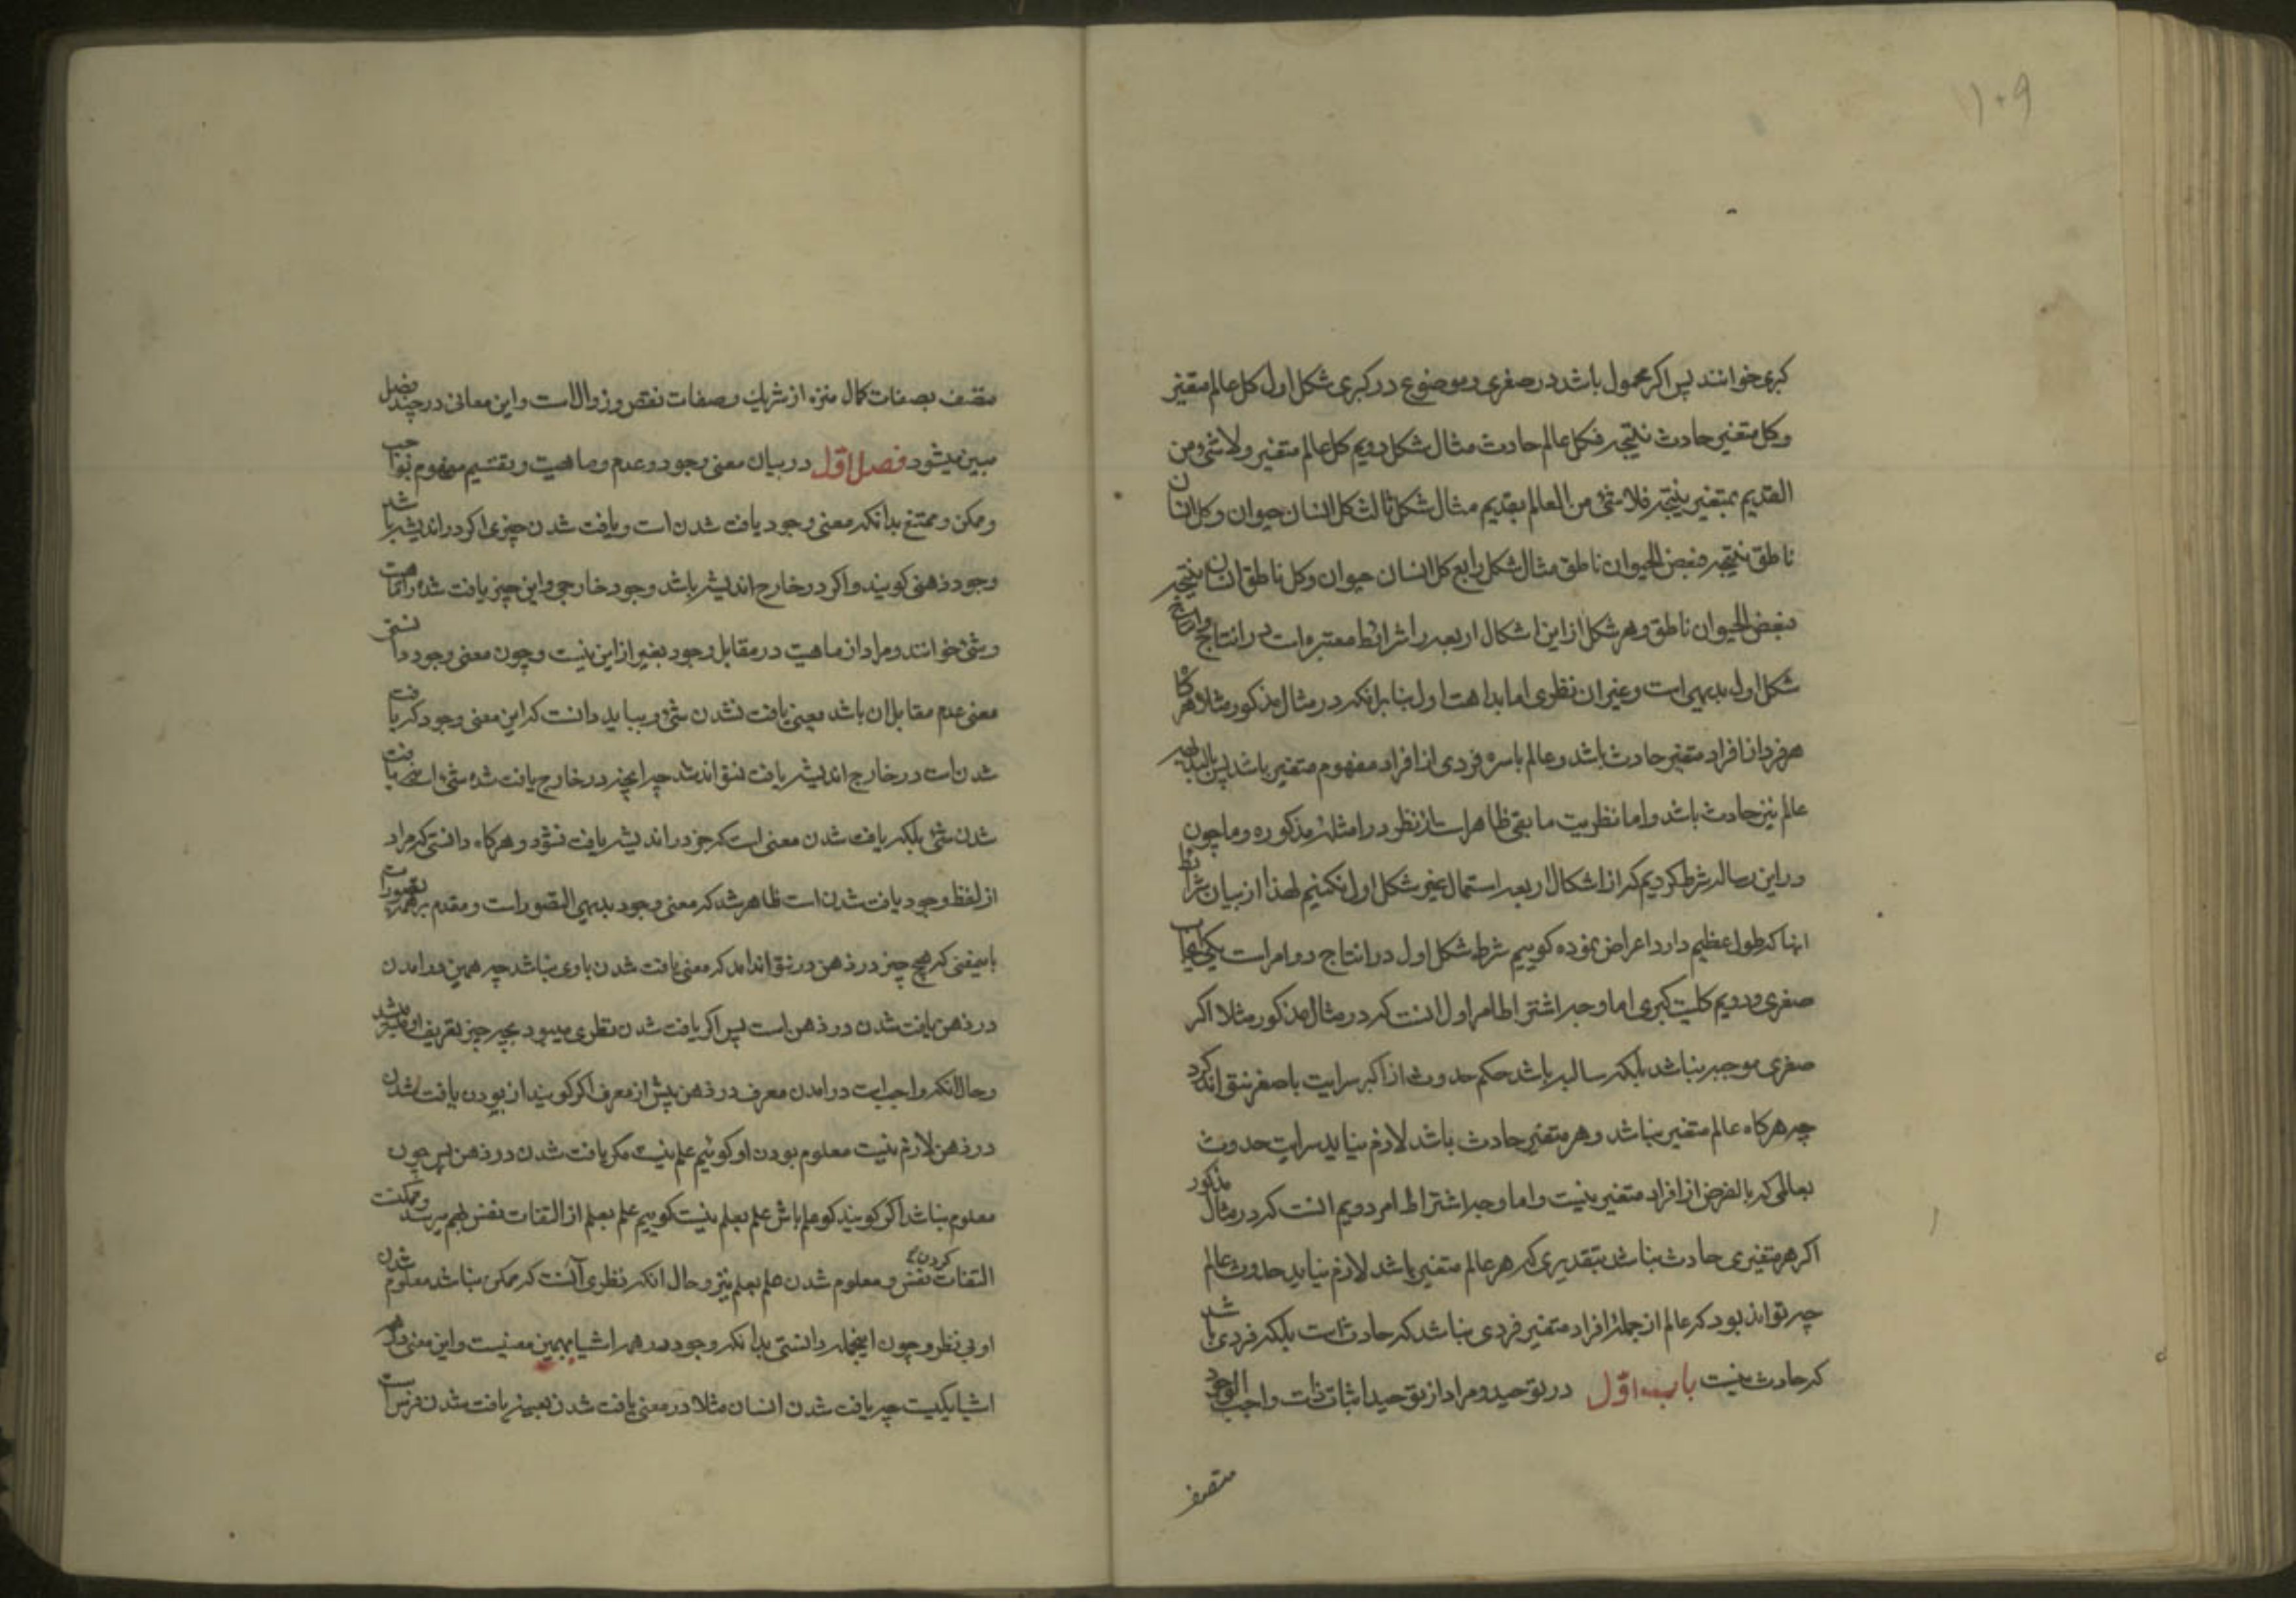 ۱۰۹
کبری خوانند پس اکر محمول باشد در صغری و موضوع در کبری شکل اول کل عالم متغیر
وکل متغیر حادث نتیجه فکل عالم حادث مثال شکل دویم کل عالم متغیر ولا شیٔ من
القدیم بمتغیر نتیجه فلا شیٔ من العالم بقدیم مثال شکل ثالث کل انسان حیوان وکل انسان
ناطق نتیجه فبعض الحیوان ناطق مثال شکل رابع کل انسان حیوان وکل ناطق انسان نتیجه
فبعض الحیوان ناطق و هر شکل از این اشکال اربعه را شرائط معتبره است در انتاج
شکل اول بدیهی است و غیر ان نظری اما بداهت اول بنا بر انکه در مثال مذکور مثلا هرکاه
هر فرد از افراد متغیر حادث باشد و عالم باسره فردی از افراد مفهوم متغیر باشد پس بالبدیهه
عالم نیز حادث باشد و اما نظریت ما بقی ظاهر است از نظر در امثله مذکوره و ما چون
در این رساله شرط کردیم که از اشکال اربعه استعمال غیر شکل اول نکنیم لهذا از بیان شرائط
انها که طول عظیم دارد اعراض نموده کوییم شرط شکل اول در انتاج دو امر است یکی ایجاب
صغری و دویم کلیت کبری اما وجه اشتراط امر اول انست که در مثال مذکور مثلا اکر
صغری موجبه نباشد بلکه سالبه باشد حکم حدوث از اکبر سرایت باصغر نتواند کرد
چه هرکاه عالم متغیر نباشد و هر متغیر حادث باشد لازم نیاید سرایت حدوث
بعالمی که بالفرض از افراد متغیر نیست و اما وجه اشتراط امر دویم انست که در مثال مذکور
اکر هر متغیری حادث نباشد بتقدیری که هر عالم متغیر باشد لازم نیاید حدوث عالم
چه تواند بود که عالم از جمله افراد متغیر فردی نباشد که حادث است بلکه فردی باشد
که حادث نیست باب اوّل در توحید و مراد از توحید اثبات ذات واجب الوجود
متصف
متصف بصفات کمال منزه از شریک و صفات نقص و زوال است و این معانی در چند فصل
مبین میشود فصل اوّل در بیان معنی وجود و عدم و ماهیت و تقسیم مفهوم بواجب
و ممکن و ممتنع بدانکه معنی وجود یافت شدن است و یافت شدن چیزی اکر در اندیشه باشد
وجود ذهنی کویند و اکر در خارج اندیشه باشد وجود خارجی و این چیز یافت شده را ماهیت
و شیٔ خوانند و مراد از ماهیت در مقابل وجود بغیر از این نیست و چون معنی وجود دانستی
معنی عدم مقابل ان باشد یعنی یافت نشدن شیٔ و بباید دانست که این معنی وجود که یافت
شدن است در خارج اندیشه یافت نتواند شد چه انچه در خارج یافت شده شیٔ است نه یافت
شدن شیٔ بلکه یافت شدن معنی است که جز در اندیشه یافت نشود و هرکاه دانستی که مراد
از لفظ وجود یافت شدن است ظاهر شد که معنی وجود بدیهی التصور است و مقدم بر همه تصورات
باین معنی که هیچ چیز در ذهن در نتواند امد که معنی یافت شدن با وی نباشد چه همین در امدن
در ذهن یافت شدن در ذهن است پس اکر یافت شدن نظری میبود بچه چیز تعریف او میشد
و حال انکه واجبست در امدن معرف در ذهن پیش از معرف اکر کویند از بودن یافت شدن
در ذهن لازم نیست معلوم بودن او کوئیم علم نیست مکر یافت شدن در ذهن پس چون
معلوم نباشد اکر کویند کو علم باش علم بعلم نیست کوییم علم بعلم از التفات نفس بهم میرسد و ممکنست
التفات کردن نفس و معلوم شدن علم بعلم نیز و حال انکه نظری آنست که ممکن نباشد معلوم شدن
او بی نظر و چون اینجمله دانستی بدانکه وجود در همه اشیا بهمین معنیست و این معنی در همه
اشیا یکیست چه یافت شدن انسان مثلا در معنی یافت شدن بعینه یافت شدن فرس است